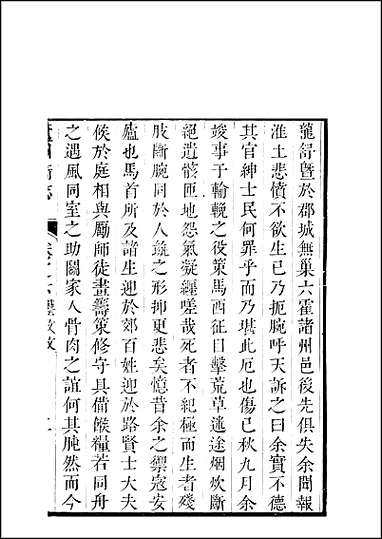 龍舒曁於郡城無巢六霍諸州邑後先俱失余聞報
淮土悲憤不欲生已乃扼腕呼天訴之曰余實不德
其官紳士民何罪乎而乃堪此厄也傷已秋九月余
竣事于輸輓之役策馬西征目擊荒草迷途烟炊斷
絕遺骸匝地怨氣凝纏嗟哉死者不紀極而生者殘
肢斷腕同於人彘之形抑更悲矣憶昔余之禦寇安
廬也馬首所及諸生迎於郊百姓迎於路賢士大夫
候於庭相與勵師徒畫籌策修守具備餱糧若同舟
之遇風同室之助鬪家人骨肉之誼何其肫然而今